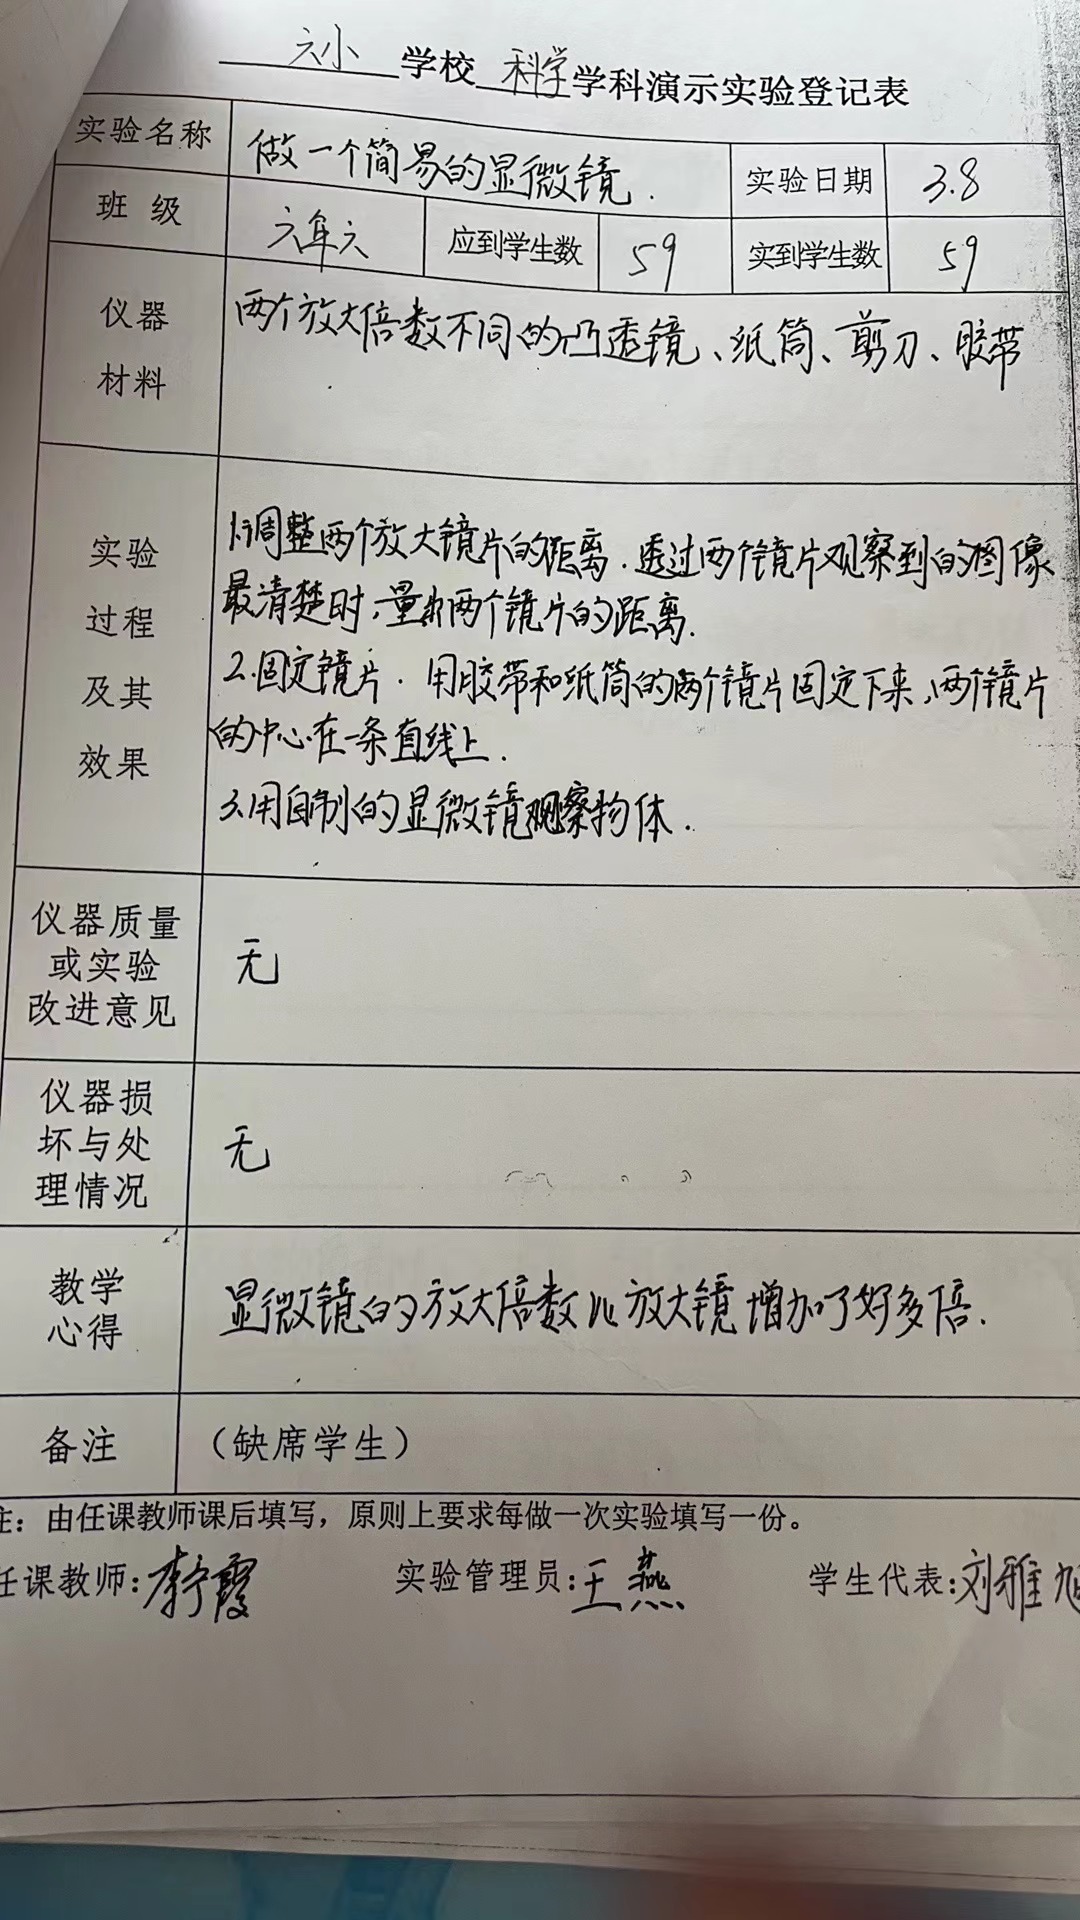 六小 学校 科学 学科演示实验登记表
实验名称 做一个简易的显微镜. 实验日期 3.8
班 级 六年六 应到学生数 59 实到学生数 59
仪器 两个放大倍数不同的凸透镜、纸筒、剪刀、胶带
材料
实验 1.调整两个放大镜片的距离.透过两个镜片观察到的图像
过程 最清楚时,量出两个镜片的距离.
及其 2.固定镜片.用胶带和纸筒的两个镜片固定下来,两个镜片
效果 的中心在一条直线上.
3.用自制的显微镜观察物体.
仪器质量
或实验 无
改进意见
仪器损
坏与处 无
理情况
教学 显微镜的放大倍数比放大镜增加了好多倍.
心得
备注 （缺席学生）
注：由任课教师课后填写，原则上要求每做一次实验填写一份。
任课教师:李霞 实验管理员:王燕 学生代表:刘雅旭